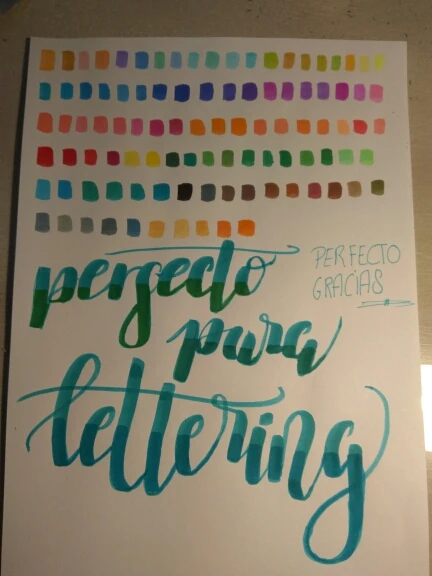 perfecto
PERFECTO
GRACIAS
para
lettering